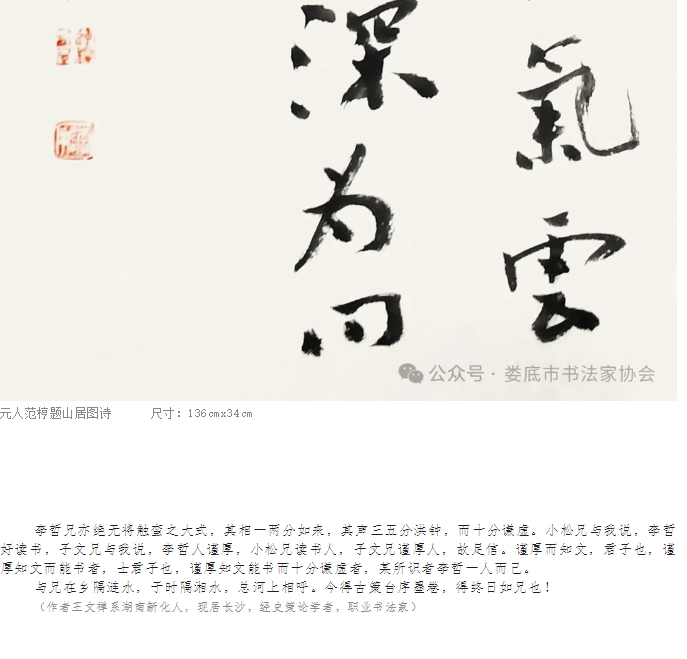 氣雲
深为问
公众号·娄底市书法家协会
元人范梈题山居图诗 尺寸：136cmx34cm
李哲兄亦绝无将触蛮之大式，其相一两分如来，其声三五分洪钟，而十分谦虚。小松兄与我说，李哲
好读书，子文兄与我说，李哲人谨厚，小松兄读书人，子文兄谨厚人，故足信。谨厚而知文，君子也，谨
厚知文而能书者，士君子也，谨厚知文能书而十分谦虚者，某所识者李哲一人而已。
与兄在乡隔涟水，于时隔湘水，总河上相呼。今得古策台序墨卷，得终日如见也！
（作者王文禅系湖南新化人，现居长沙，经史策论学者，职业书法家）